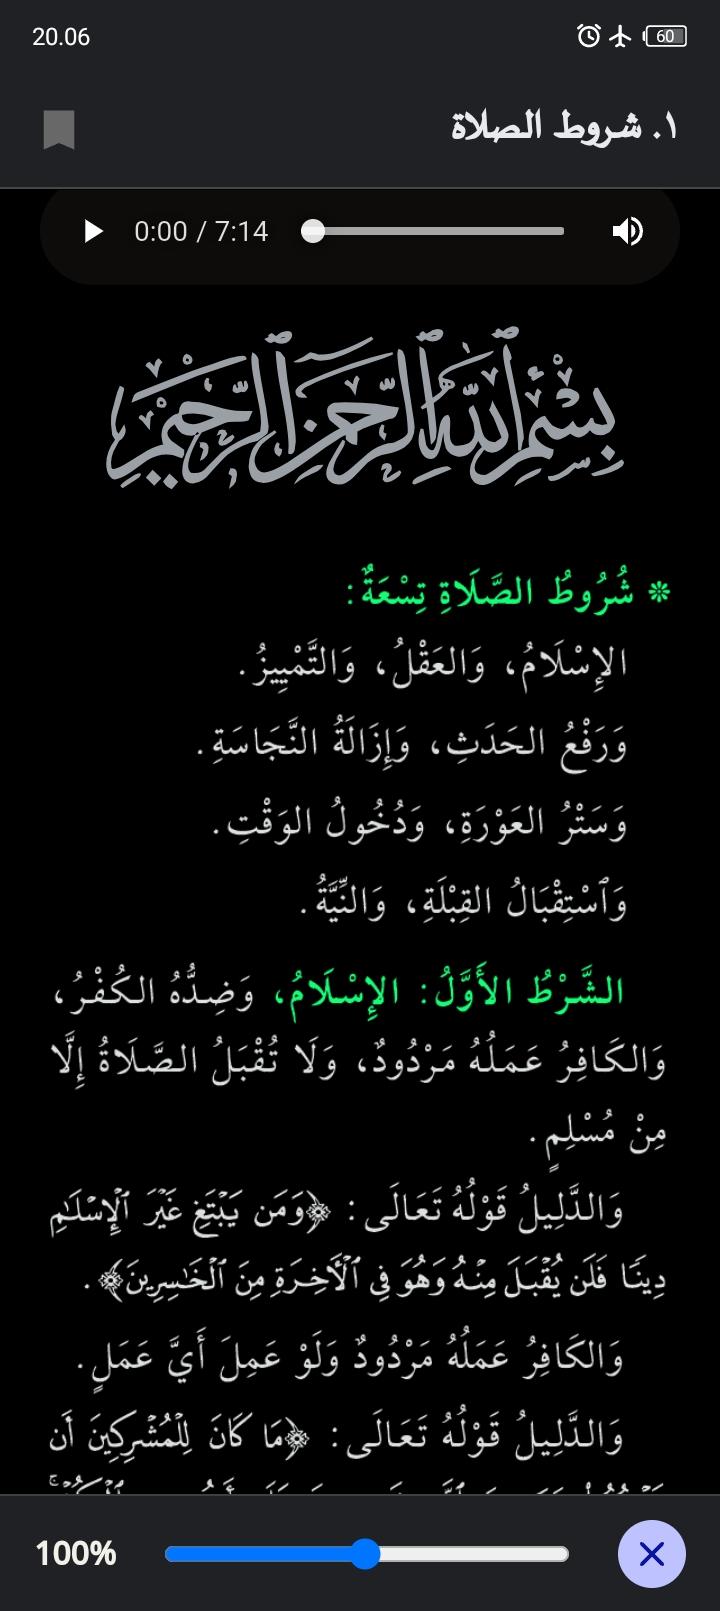 20.06
60
١. شروط الصلاة
0:00 / 7:14
بِسْمِ ٱللَّهِ ٱلرَّحْمَٰنِ ٱلرَّحِيمِ
❊ شُرُوطُ الصَّلَاةِ تِسْعَةٌ:
الإِسْلَامُ، وَالعَقْلُ، وَالتَّمْيِيزُ.
وَرَفْعُ الحَدَثِ، وَإِزَالَةُ النَّجَاسَةِ.
وَسَتْرُ العَوْرَةِ، وَدُخُولُ الوَقْتِ.
وَٱسْتِقْبَالُ القِبْلَةِ، وَالنِّيَّةُ.
الشَّرْطُ الأَوَّلُ: الإِسْلَامُ، وَضِدُّهُ الكُفْرُ،
وَالكَافِرُ عَمَلُهُ مَرْدُودٌ، وَلَا تُقْبَلُ الصَّلَاةُ إِلَّا
مِنْ مُسْلِمٍ.
وَالدَّلِيلُ قَوْلُهُ تَعَالَى: ﴿وَمَن يَبْتَغِ غَيْرَ ٱلْإِسْلَٰمِ
دِينًا فَلَن يُقْبَلَ مِنْهُ وَهُوَ فِي ٱلْأٓخِرَةِ مِنَ ٱلْخَٰسِرِينَ﴾.
وَالكَافِرُ عَمَلُهُ مَرْدُودٌ وَلَوْ عَمِلَ أَيَّ عَمَلٍ.
وَالدَّلِيلُ قَوْلُهُ تَعَالَى: ﴿مَا كَانَ لِلْمُشْرِكِينَ أَن
100%